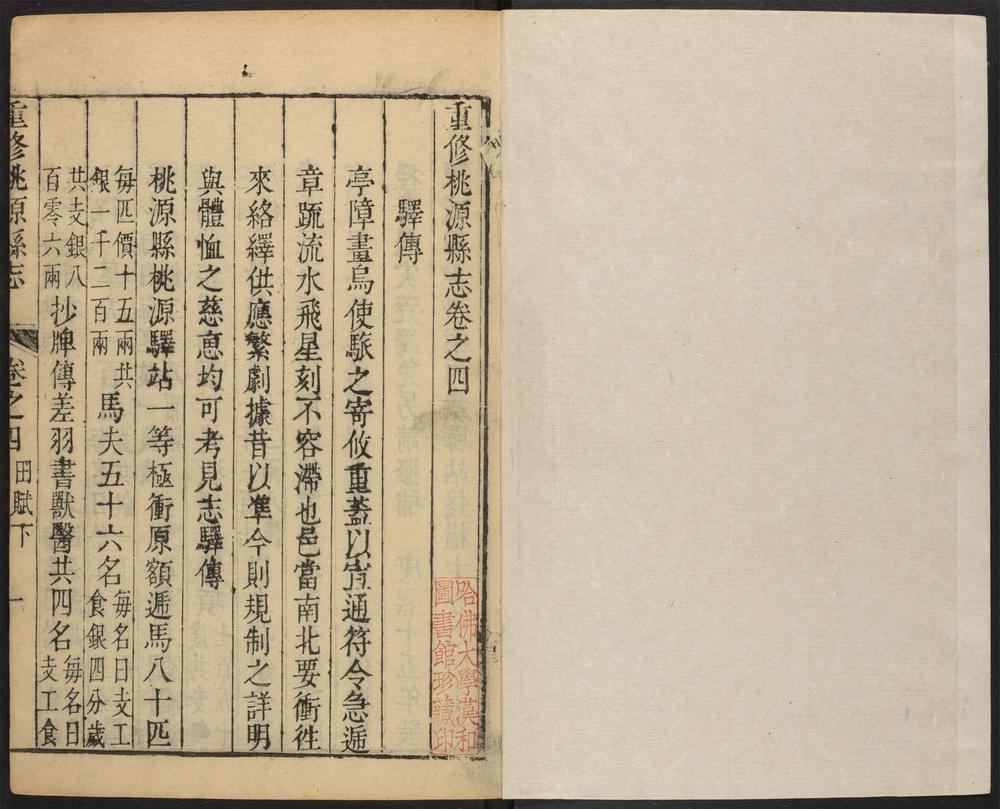 重修桃源縣志卷之四
驛傳
亭障畫烏使駅之寄攸重蓋以宣通符令急遞
章䟽流水飛星刻不容滯也邑當南北要衝徃
來絡繹供應繁劇據昔以準今則規制之詳明
與體恤之慈恵均可考見志驛傳
桃源縣桃源驛站一等極衝原額遞馬八十匹
每匹價十五兩共
銀一千二百兩
馬夫五十六名
每名日支工
食銀四分歲
共支銀八
百零六兩
抄牌傳差羽書獸醫共四名
每名日
支工食
重修桃源縣志
卷之四
田賦下
一
哈佛大學漢和
圖書館珍藏印